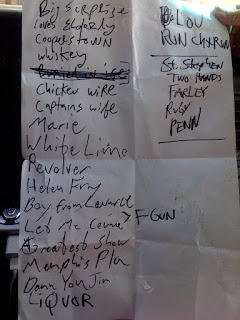 Big Surprise
Loves Elderly
Cooperstown
whiskey
Chicken wire
Captains wife
Marie
White Lime
Revolver
Helen Fry
Boy from
Let Me
Greatest Show
Memphis
Damn You Jim
LIQUOR
LOU
RUN CHXRUN
St. Stephen
TWO HANDS
FARLEY
RUBY
PENN
F-GUN